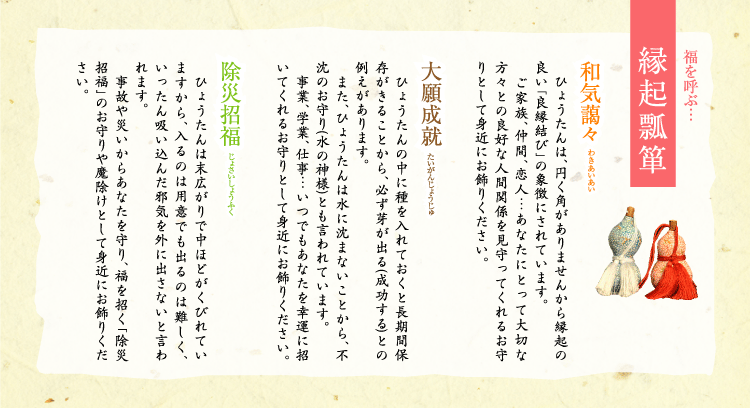 福を呼ぶ…
縁起瓢箪
和気藹々
わきあいあい
ひょうたんは、円く角がありませんから縁起の
良い「良縁結び」の象徴にされています。
ご家族、仲間、恋人…あなたにとって大切な
方々との良好な人間関係を見守ってくれるお守
りとして身近にお飾りください。
大願成就
たいがんじょうじゅ
ひょうたんの中に種を入れておくと長期間保
存がきることから、必ず芽が出る(成功する)との
例えがあります。
また、ひょうたんは水に沈まないことから、不
沈のお守り(水の神様)とも言われています。
事業、学業、仕事…いつでもあなたを幸運に招
いてくれるお守りとして身近にお飾りください。
除災招福
じょさいしょうふく
ひょうたんは末広がりで中ほどがくびれてい
ますから、入るのは用意でも出るのは難しく、
いったん吸い込んだ邪気を外に出さないと言わ
れます。
事故や災いからあなたを守り、福を招く「除災
招福」のお守りや魔除けとして身近にお飾りくだ
さい。